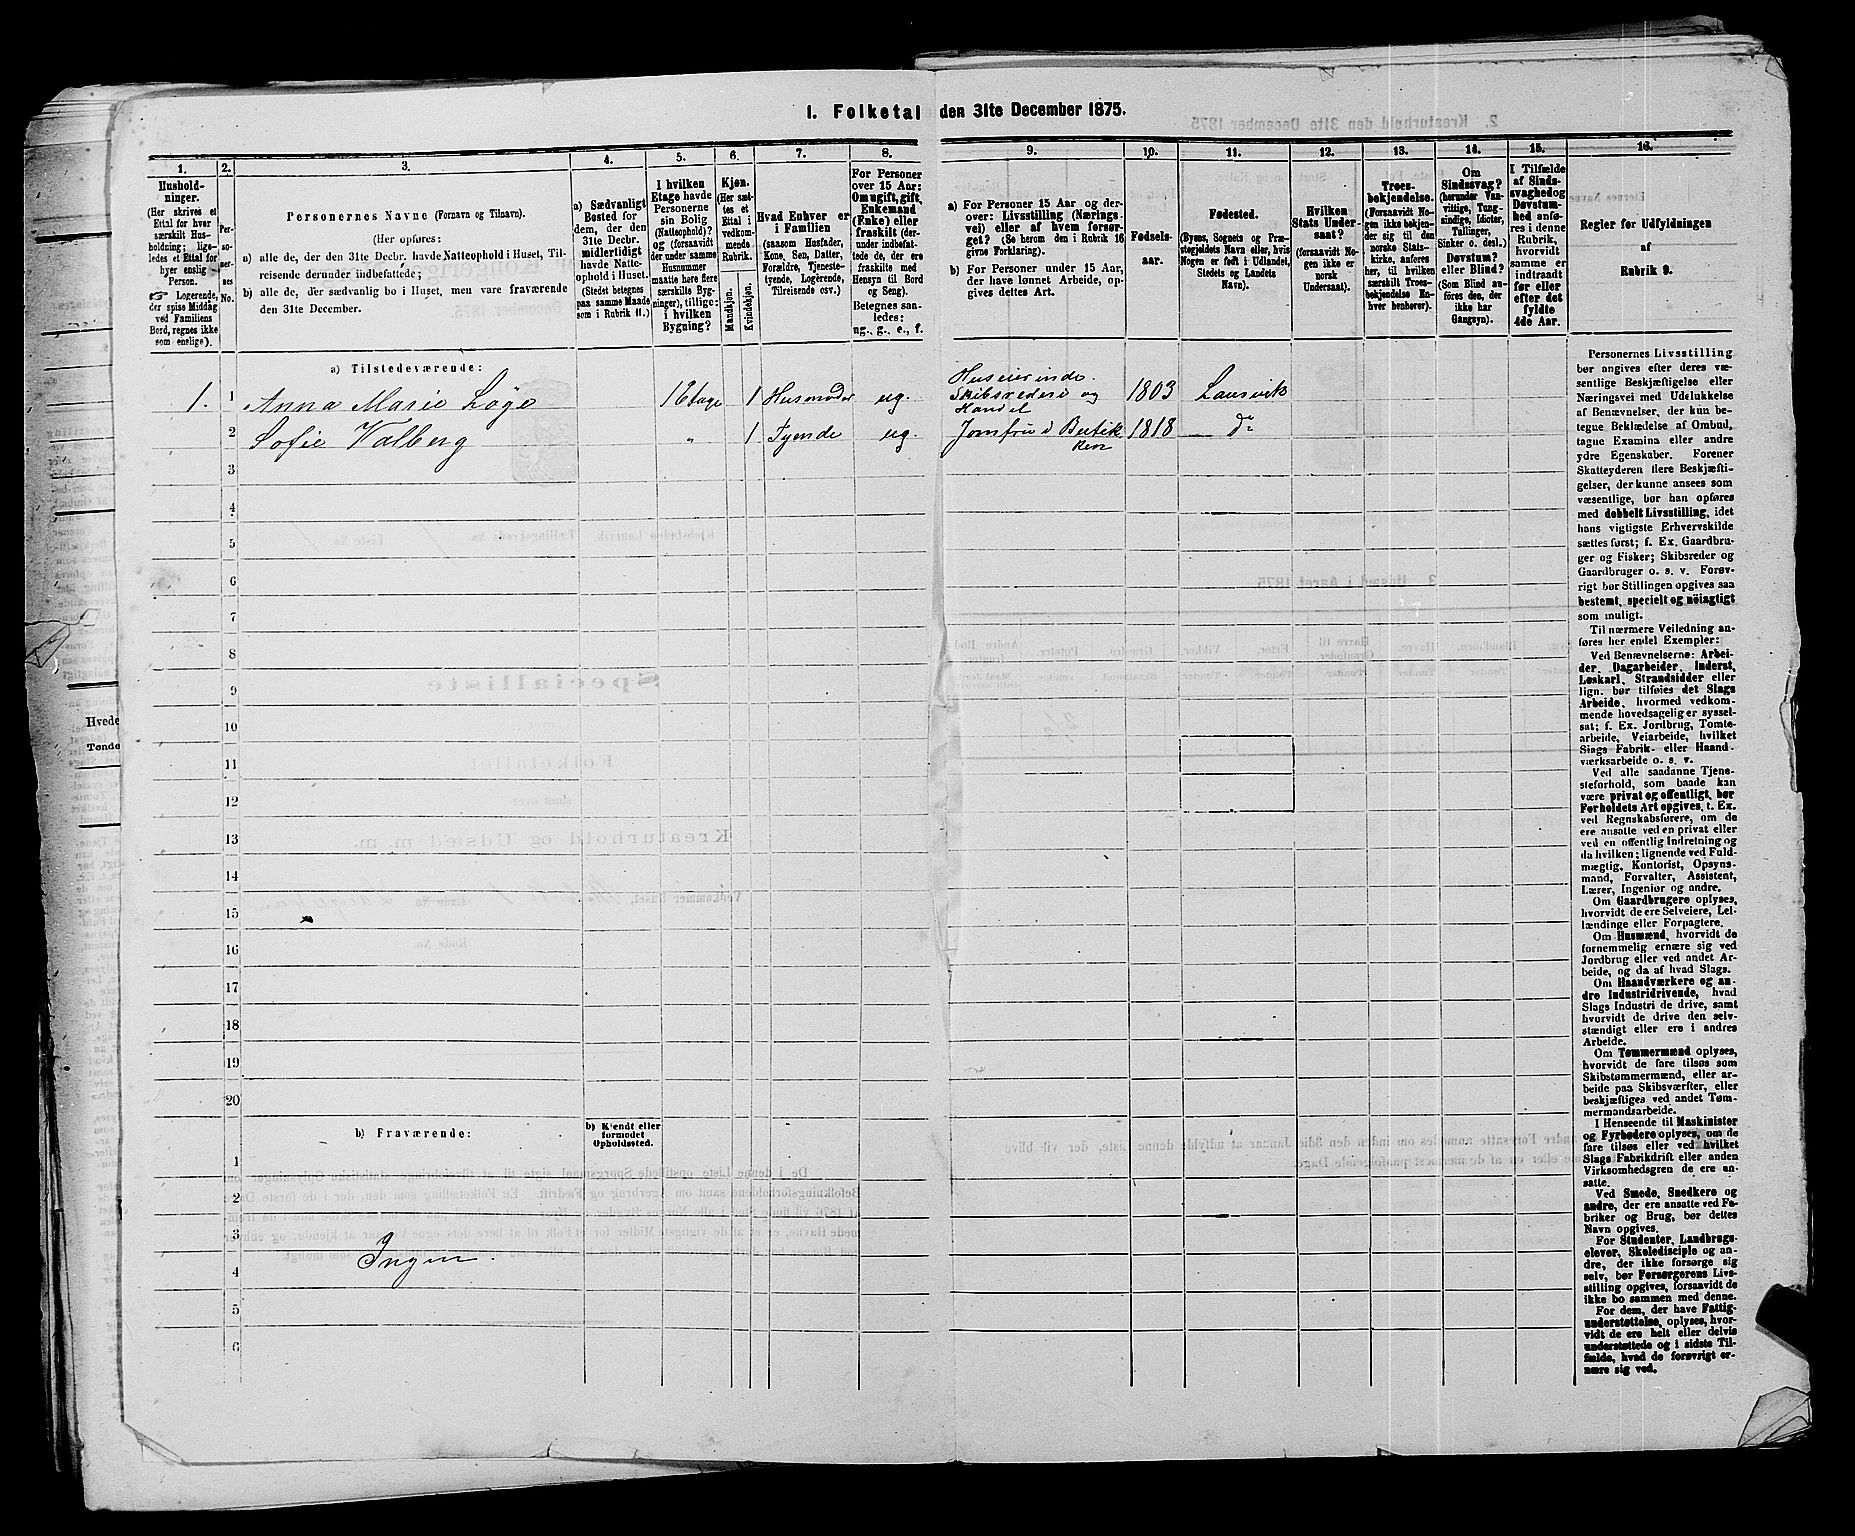 1. Folketal den 31te December 1875.
1.
Hushold-
ninger.
(Her skrives et
Ettal for hver
særskilt Hus-
holdning; lige-
ledes et Ettal for
hver enslig
Person.
Logerende,
der spise Middag
ved Familiens
Bord, regnes ikke
som enslige).
2.
Per-
so-
ner-
nes
No.
3.
Personernes Navne (Fornavn og Tilnavn).
(Her opføres:
a) alle de, der den 31te Decbr. havde Natteophold i Huset, Til-
reisende derunder indbefattede;
b) alle de, der sædvanlig bo i Huset, men vare fraværende
den 31te December.
4.
a) Sædvanligt
Bosted for
dem, der den
31te Decbr.
midlertidigt
havde Natte-
ophold i Huset.
(Stedet betegnes
paa samme Maade
som i Rubrik 11.)
5.
I hvilken
Etage havde
Personerne
sin Bolig
(Natteophold)?
og (forsaavidt
der under samme
Husnummer
maatte høre flere
særskilte Byg-
ninger), tillige:
i hvilken
Bygning?
6.
Kjøn.
(Her sæt-
tes et
Ettal i
vedkom-
mende
Rubrik.
Mandkjøn.
Kvindekjøn.
7.
Hvad Enhver er
i Familien
(saasom Husfader,
Kone, Søn, Datter,
Forældre, Tjeneste-
tyende, Logerende,
Tilreisende osv.)
8.
For Personer
over 15 Aar:
Om ugift, gift,
Enkemand
(Enke) eller
fraskilt (der-
under indbefat-
tede de, der ere
fraskilte med
Hensyn til Bord
og Seng).
Betegnes saa-
ledes:
ug., g., e., f.
9.
a) For Personer 15 Aar og der-
over: Livsstilling (Nærings-
vei) eller af hvem forsør-
get? (Se herom den i Rubrik 16
givne Forklaring).
b) For Personer under 15 Aar,
der have lønnet Arbeide, op-
gives dettes Art.
10.
Fødsels-
aar.
11.
Fødested.
(Byens, Sognets og Præ-
stegjeldets Navn eller, hvis
Nogen er født i Udlandet,
Stedets og Landets
Navn).
12.
Hvilken
Stats Under-
saat?
(forsaavidt No-
gen ikke er
norsk
Undersaat).
13.
Troes-
bekjendelse.
(Forsaavidt No-
gen ikke bekjen-
der sig til den
norske Stats-
kirke, anføres
her, til hvilken
særskilt Troes-
bekjendelse En-
hver henhører).
14.
Om
Sindssvag?
(herunder Van-
vittige, Tung-
sindige, Idioter,
Tullinger,
Sinker o. desl.)
Døvstum?
eller Blind?
(Som Blind an-
føres den, der
ikke har
Gangsyn).
15.
I Tilfælde
af Sinds-
svaghed og
Døvstum-
hed anfø-
res i denne
Rubrik,
hvorvidt
samme er
indtraadt
før eller
efter det
fyldte
4de Aar.
16.
Regler for Udfyldningen
af
Rubrik 9.
a) Tilstedeværende:
1. 1 Anna Marie Løge 1 Etage 1 Husmoder ug. Huseierinde. Skibsrederi og Handel 1803 Laurvik
2 Sofie Valberg " 1 Tyende ug. Jomfru i Butikken 1818 do
3
4
5
6
7
8
9
10
11
12
13
14
15
16
17
18
19
20
b) Fraværende:
b) Kjendt eller
formodet
Opholdssted.
1
2
3
4 Ingen.
5
6
Personernes Livsstilling
bør angives efter deres væ-
sentlige Beskjæftigelse eller
Næringsvei med Udelukkelse
af Benævnelser, der kun be-
tegne Beklædelse af Ombud,
tagne Examina eller andre
ydre Egenskaber. Forener
Skatteyderen flere Beskjæfti-
gelser, der kunne ansees som
væsentlige, bør han opføres
med dobbelt Livsstilling, idet
hans vigtigste Erhvervskilde
sættes først; f. Ex. Gaardbru-
ger og Fisker; Skibsreder og
Gaardbruger o. s. v. Forøv-
rigt bør Stillingen opgives saa
bestemt, specielt og nöiagtigt
som muligt.
Til nærmere Veiledning an-
føres her endel Exempler:
Ved Benævnelserne: Arbei-
der, Dagarbeider, Inderst,
Løskarl, Strandsidder eller
lign. bør tilføies det Slags
Arbeide, hvormed vedkom-
mende hovedsagelig er syssel-
sat; f. Ex. Jordbrug, Tomte-
arbeide, Veiarbeide, hvilket
Slags Fabrik- eller Haand-
værksarbeide o. s. v.
Ved alle saadanne Tjene-
steforhold, som baade kan
være privat og offentligt, bør
Forholdets Art opgives, t. Ex.
ved Regnskabsførere, om de
ere ansatte ved en privat eller
ved en offentlig Indretning og
da hvilken; lignende ved Fuld-
mægtig, Kontorist, Opsyns-
mand, Forvalter, Assistent,
Lærer, Ingeniør og andre.
Om Gaardbrugere oplyses,
hvorvidt de ere Selveiere, Lei-
lændinge eller Forpagtere.
Om Husmænd, hvorvidt de
fornemmelig ernære sig ved
Jordbrug eller ved andet Ar-
beide, og da af hvad Slags.
Om Haandværkere og an-
dre Industridrivende, hvad
Slags Industri de drive, samt
hvorvidt de drive den selv-
stændigt eller ere i andres
Arbeide.
Om Tømmermænd oplyses,
hvorvidt de fare tilsøs som
Skibstømmermænd, eller ar-
beide paa Skibsværfter, eller
beskjæftiges ved andet Tøm-
mermandsarbeide.
I Henseende til Maskinister
og Fyrbødere oplyses, om de
fare tilsøs eller ved hvilket
Slags Fabrikdrift eller anden
Virksomhedsgren de ere an-
satte.
Ved Smede, Snedkere og
andre, der ere ansatte ved Fa-
briker og Brug, bør dettes
Navn opgives.
For Studenter, Landbrugs-
elever, Skoledisciple og an-
dre, der ikke forsørge sig
selv, bør Forsørgerens Livs-
stilling opgives, forsaavidt de
ikke bo sammen med denne.
For dem, der have Fattig-
understøttelse, oplyses, hvor-
vidt de ere helt eller delvis
understøttede og i sidste Til-
fælde, hvad de forøvrigt er-
nære sig ved.
Hvede
Tønde